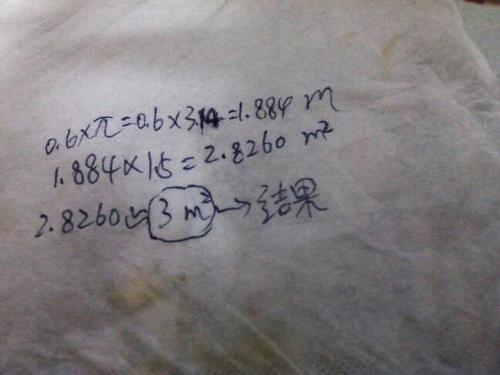 0.6×π=0.6×3.14=1.884 m
1.884×1.5=2.8260 m²
2.8260≌3 m²→结果